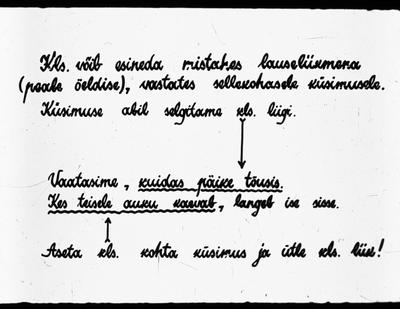 Kls. võib esineda mistahes lauseliikmena
(peale öeldise), vastates sellekohasele küsimusele.
Küsimuse abil selgitame kls. liigi.
Vaatasime, kuidas päike tõusis.
Kes teisele auku kaevab, langeb ise sisse.
Aseta kls. kohta küsimus ja ütle kls. liik!